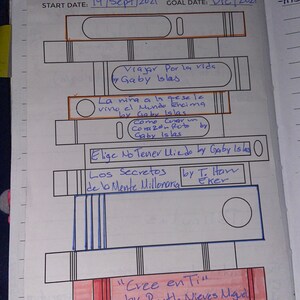 START DATE: 19/Sept/2021 GOAL DATE: Dic/2021
Viajar Por la vida
by Gaby Islas
La niña a la que se le
vino el mundo encima
by Gaby Islas
Como curar un
Corazon Roto by
Gaby Islas
Elige No Tener Miedo by Gaby Islas
Los Secretos
de la Mente Millonaria
by T. Harv
Eker
"Cree en Ti"
by Nieves